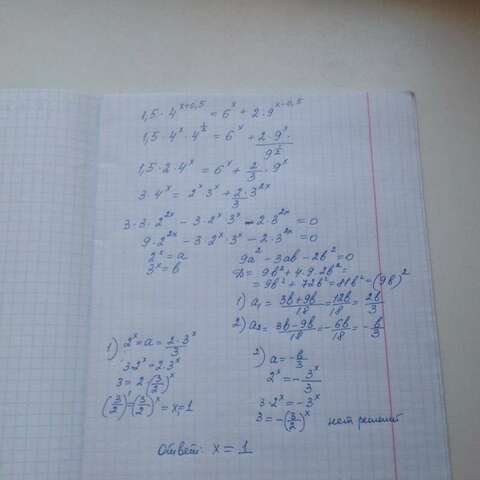 1,5 · 4^{x+0,5} = 6^x + 2 · 9^{x-0,5}
1,5 · 4^x · 4^{1/2} = 6^x + 2 · 9^x / 9^{1/2}
1,5 · 2 · 4^x = 6^x + 2/3 · 9^x
3 · 4^x = 2^x 3^x + 2/3 · 3^{2x}
3 · 3 · 2^{2x} - 3 · 2^x 3^x - 2 · 3^{2x} = 0
9 · 2^{2x} - 3 · 2^x · 3^x - 2 · 3^{2x} = 0
2^x = a
3^x = b
9a² - 3ab - 2b² = 0
D = 9b² + 4 · 9 · 2b² =
= 9b² + 72b² = 81b² = (9b)²
1) a₁ = (3b+9b)/18 = 12b/18 = 2b/3
2) a₂ = (3b-9b)/18 = -6b/18 = -b/3
1) 2^x = a = 2 · 3^x / 3
3 · 2^x = 2 · 3^x
3 = 2 · (3/2)^x
(3/2)^1 = (3/2)^x = x = 1
2) a = -b/3
2^x = - 3^x / 3
3 · 2^x = -3^x
3 = -(3/2)^x нет решений
Ответ: x = 1